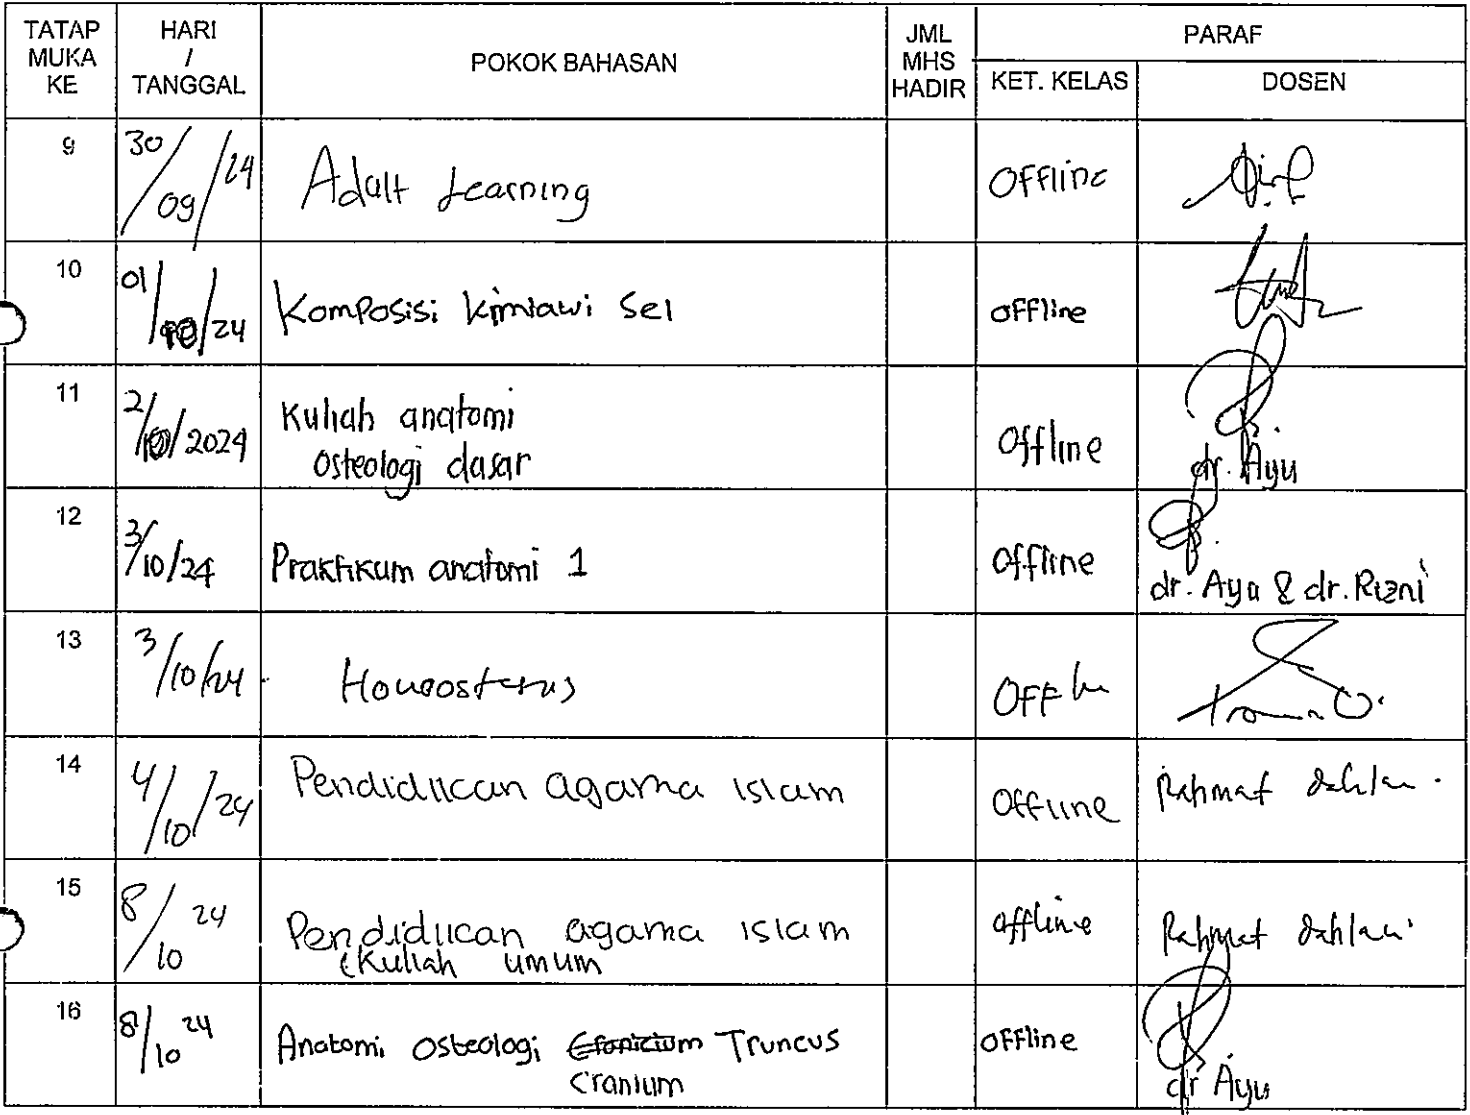 TATAP MUKA KE | HARI / TANGGAL | POKOK BAHASAN | JML MHS HADIR | PARAF
KET. KELAS | DOSEN
9 | 30/09/24 | Adult Learning | Offline
10 | 01/10/24 | Komposisi kimiawi sel | offline
11 | 2/10/2024 | Kuliah anatomi | Offline
Osteologi dasar | dr. Ayu
12 | 3/10/24 | Praktikum anatomi 1 | Offline | dr. Ayu & dr. Rizni
13 | 3/10/24 | Homeostasis
14 | 4/10/24 | Pendidikan agama islam | Offline | Rahmat dahlan
15 | 8/10 24 | Pendidikan agama islam | offline | Rahmat dahlan
(Kuliah umum
16 | 8/10 24 | Anatomi osteologi Truncus | offline | dr Ayu
cranium